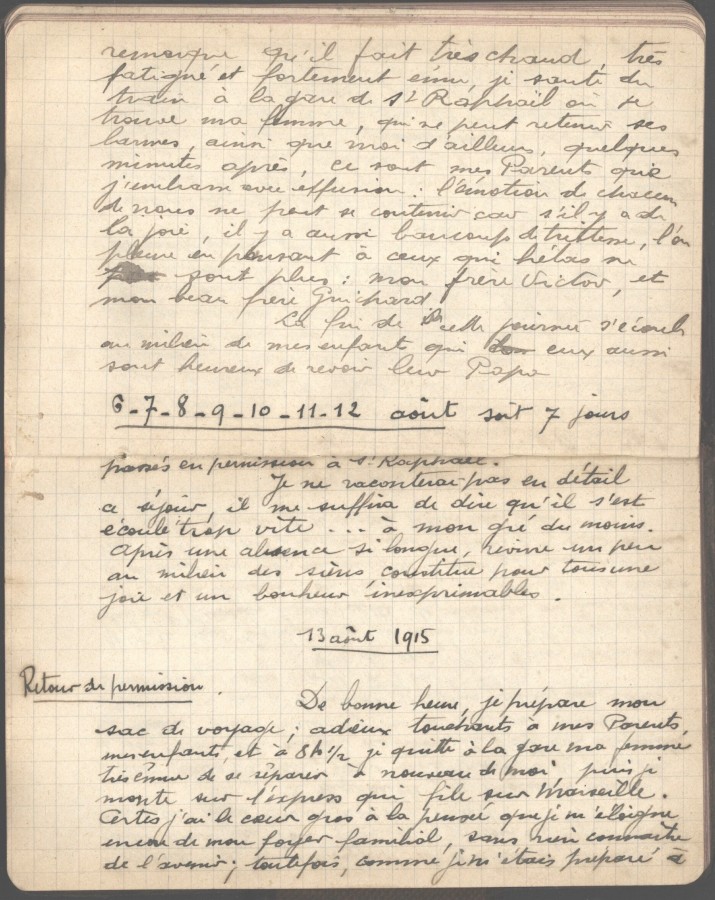 remarque qu'il fait très chaud, très
fatigué et fortement ému, je saute du
train à la gare de St Raphaël où se
trouve ma femme, qui ne peut retenir ses
larmes, ainsi que moi d'ailleurs, quelques
minutes après, ce sont mes Parents que
j'embrasse avec effusion : l'émotion de chacun
de nous ne peut se contenir car s'il y a de
la joie, il y a aussi beaucoup de tristesse, l'on
pleure en pensant à ceux qui hélas ne
sont plus : mon frère Victor, et
mon beau frère Guichard
La fin de cette journée s'écoule
au milieu de mes enfant qui eux aussi
sont heureux de revoir leur Papa
6-7-8-9-10-11-12 août soit 7 jours
passés en permission à St Raphaël.
Je ne raconterai pas en détail
ce séjour, il me suffira de dire qu'il s'est
écoulé trop vite ... à mon gré du moins.
Après une absence si longue, revivre un peu
au milieu des siens, constitue pour tous une
joie et un bonheur inexprimables.
13 août 1915
Retour de permission.
De bonne heure, je prépare mon
sac de voyage ; adieux touchants à mes Parents,
mes enfants, et à 8h 1/2 je quitte à la gare ma femme
très émue de se séparer à nouveau de moi, puis je
monte sur l'express qui file sur Marseille.
Certes j'ai le cœur gros à la pensée que je m'éloigne
encore de mon foyer familial, sans rien connaître
de l'avenir ; toutefois, comme je m'étais préparé à